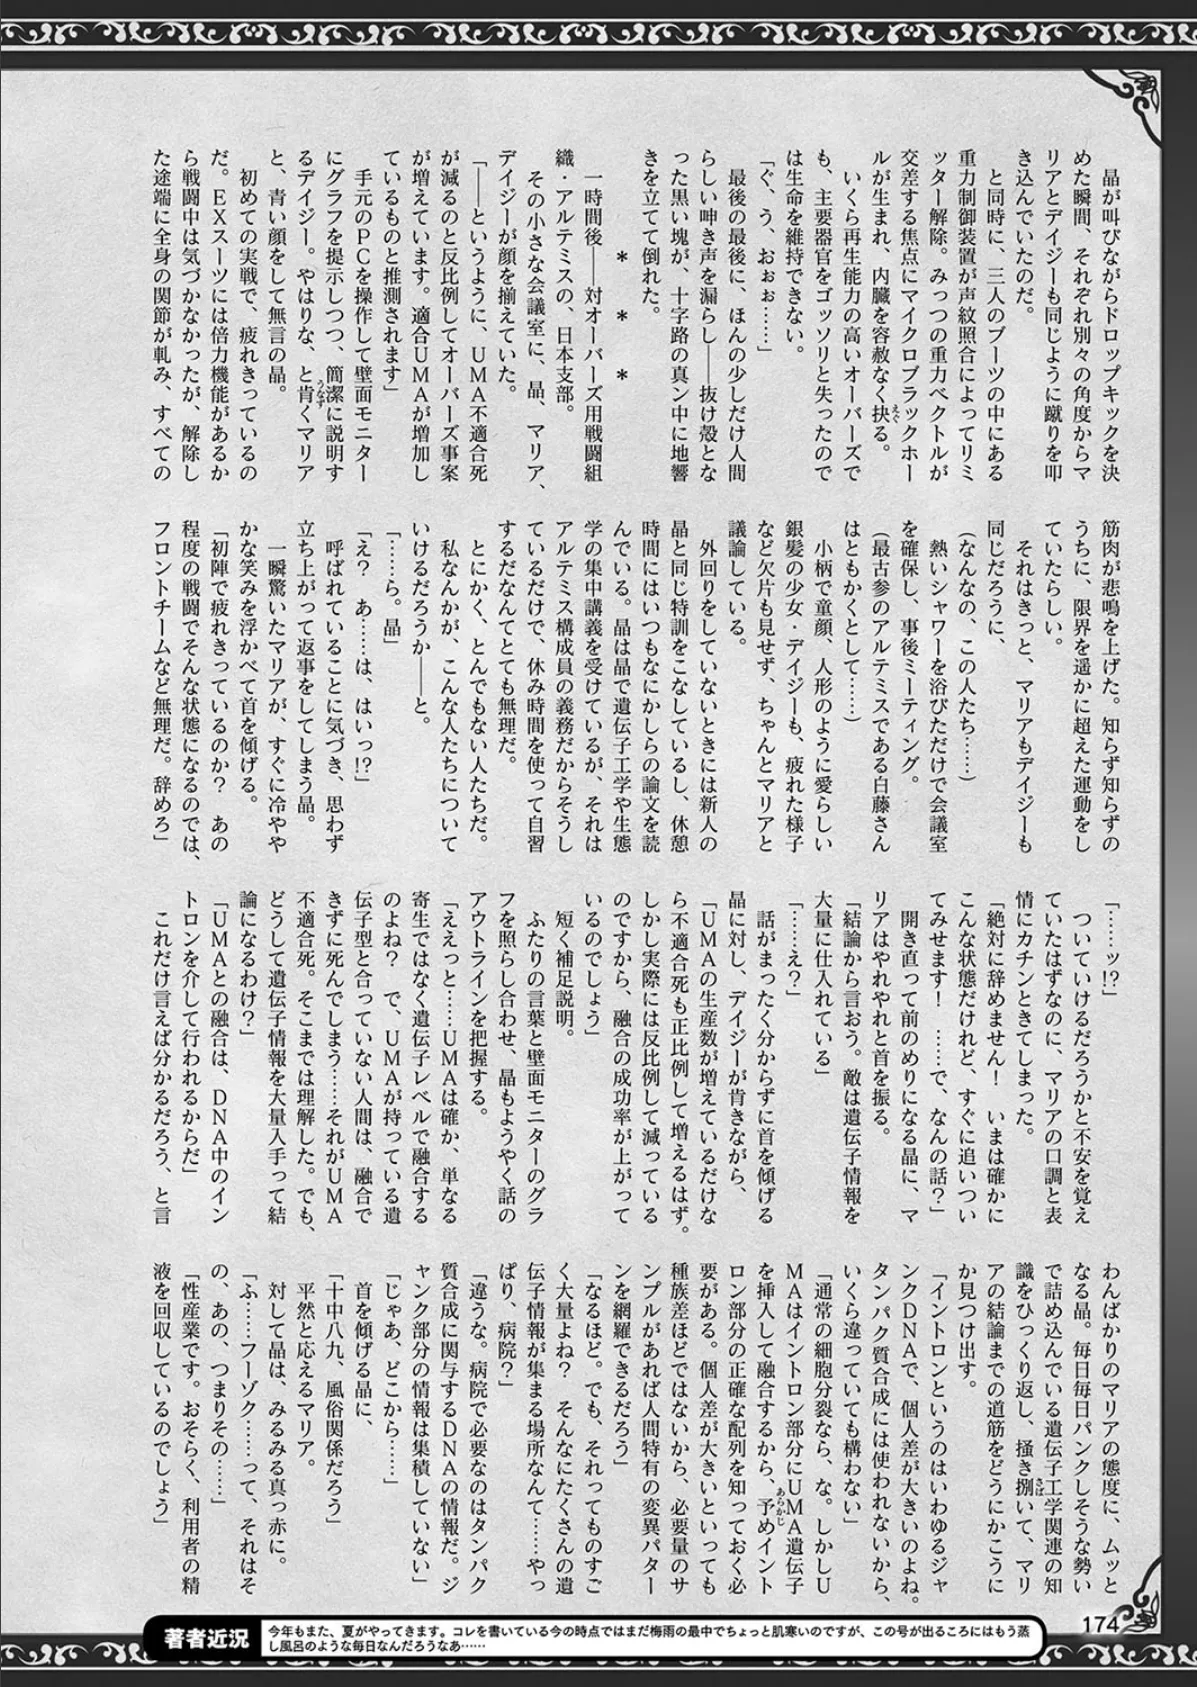 晶が叫びながらドロップキックを決
めた瞬間、それぞれ別々の角度からマ
リアとデイジーも同じように蹴りを叩
き込んでいたのだ。
と同時に、三人のブーツの中にある
重力制御装置が声紋照合によってリミ
ッター解除。みっつの重力ベクトルが
交差する焦点にマイクロブラックホー
ルが生まれ、内臓を容赦なく抉る。
いくら再生能力の高いオーバーズで
も、主要器官をゴッソリと失ったので
は生命を維持できない。
「ぐ、う、おぉぉ……」
最後の最後に、ほんの少しだけ人間
らしい呻き声を漏らし――抜け殻とな
った黒い塊が、十字路の真ン中に地響
きを立てて倒れた。
＊　＊　＊
一時間後――対オーバーズ用戦闘組
織・アルテミスの、日本支部。
その小さな会議室に、晶、マリア、
デイジーが顔を揃えていた。
「――というように、ＵＭＡ不適合死
が減るのと反比例してオーバーズ事案
が増えています。適合ＵＭＡが増加し
ているものと推測されます」
手元のＰＣを操作して壁面モニター
にグラフを提示しつつ、簡潔に説明す
るデイジー。やはりな、と肯くマリア
と、青い顔をして無言の晶。
初めての実戦で、疲れきっているの
だ。ＥＸスーツには倍力機能があるか
ら戦闘中は気づかなかったが、解除し
た途端に全身の関節が軋み、すべての
筋肉が悲鳴を上げた。知らず知らずの
うちに、限界を遥かに超えた運動をし
ていたらしい。
それはきっと、マリアもデイジーも
同じだろうに、
（なんなの、この人たち……）
熱いシャワーを浴びただけで会議室
を確保し、事後ミーティング。
（最古参のアルテミスである白藤さん
はともかくとして……）
小柄で童顔、人形のように愛らしい
銀髪の少女・デイジーも、疲れた様子
など欠片も見せず、ちゃんとマリアと
議論している。
外回りをしていないときには新人の
晶と同じ特訓をこなしているし、休憩
時間にはいつもなにかしらの論文を読
んでいる。晶は晶で遺伝子工学や生態
学の集中講義を受けているが、それは
アルテミス構成員の義務だからそうし
ているだけで、休み時間を使って自習
するだなんてとても無理だ。
とにかく、とんでもない人たちだ。
私なんかが、こんな人たちについて
いけるだろうか――と。
「……ら。晶」
「え？　あ……は、はいっ!?」
呼ばれていることに気づき、思わず
立ち上がって返事をしてしまう晶。
一瞬驚いたマリアが、すぐに冷やや
かな笑みを浮かべて首を傾げる。
「初陣で疲れきっているのか？　あの
程度の戦闘でそんな状態になるのでは、
フロントチームなど無理だ。辞めろ」
「……ッ!?」
ついていけるだろうかと不安を覚え
ていたはずなのに、マリアの口調と表
情にカチンときてしまった。
「絶対に辞めません！　いまは確かに
こんな状態だけれど、すぐに追いつい
てみせます！　……で、なんの話？」
開き直って前のめりになる晶に、マ
リアはやれやれと首を振る。
「結論から言おう。敵は遺伝子情報を
大量に仕入れている」
「……え？」
話がまったく分からずに首を傾げる
晶に対し、デイジーが肯きながら、
「ＵＭＡの生産数が増えているだけな
ら不適合死も正比例して増えるはず。
しかし実際には反比例して減っている
のですから、融合の成功率が上がって
いるのでしょう」
短く補足説明。
ふたりの言葉と壁面モニターのグラ
フを照らし合わせ、晶もようやく話の
アウトラインを把握する。
「ええっと……ＵＭＡは確か、単なる
寄生ではなく遺伝子レベルで融合する
のよね？　で、ＵＭＡが持っている遺
伝子型と合っていない人間は、融合で
きずに死んでしまう……それがＵＭＡ
不適合死。そこまでは理解した。でも、
どうして遺伝子情報を大量入手って結
論になるわけ？」
「ＵＭＡとの融合は、ＤＮＡ中のイン
トロンを介して行われるからだ」
これだけ言えば分かるだろう、と言
わんばかりのマリアの態度に、ムッと
なる晶。毎日毎日パンクしそうな勢い
で詰め込んでいる遺伝子工学関連の知
識をひっくり返し、掻き捌いて、マリ
アの結論までの道筋をどうにかこうに
か見つけ出す。
「イントロンというのはいわゆるジャ
ンクＤＮＡで、個人差が大きいのよね。
タンパク質合成には使われないから、
いくら違っていても構わない」
「通常の細胞分裂なら、な。しかしＵ
ＭＡはイントロン部分にＵＭＡ遺伝子
を挿入して融合するから、予めイント
ロン部分の正確な配列を知っておく必
要がある。個人差が大きいといっても
種族差ほどではないから、必要量のサ
ンプルがあれば人間特有の変異パター
ンを網羅できるだろう」
「なるほど。でも、それってものすご
く大量よね？　そんなにたくさんの遺
伝子情報が集まる場所なんて……やっ
ぱり、病院？」
「違うな。病院で必要なのはタンパク
質合成に関与するＤＮＡの情報だ。ジ
ャンク部分の情報は集積していない」
「じゃあ、どこから……」
首を傾げる晶に、
「十中八九、風俗関係だろう」
平然と応えるマリア。
対して晶は、みるみる真っ赤に。
「ふ……フーゾク……って、それはそ
の、あの、つまりその……」
「性産業です。おそらく、利用者の精
液を回収しているのでしょう」
174
著者近況
今年もまた、夏がやってきます。コレを書いている今の時点ではまだ梅雨の最中でちょっと肌寒いのですが、この号が出るころにはもう蒸
し風呂のような毎日なんだろうなあ……